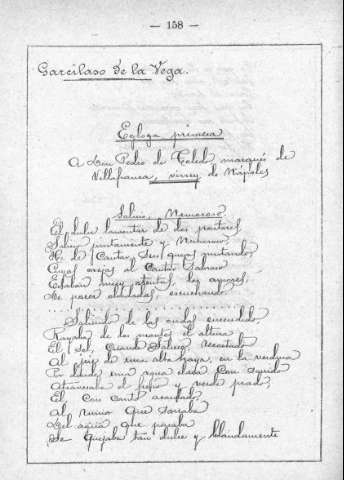 — 158 —
Garcilaso de la Vega.
Egloga primera
A Don Pedro de Toledo marqués de
Villafranca, virrey de Nápoles
Salicio, Nemoroso
El dulce lamentar de dos pastores,
Salicio juntamente y Nemoroso,
He de Cantar, sus quejas imitando,
Cuyas ovejas al Cantar Sabroso
Estaban muy atentas, los amores,
De pacer olvidadas, escuchando
Saliendo de las ondas encendido,
Rayaba de los montes el altura
El Sol, Cuando Salicio recostado
Al pie de una alta haya, en la verdura
Por donde una agua clara Con Sonido
Atravesaba el fresco y verde prado,
El Con canto acordado
Al rumor que sonaba
Del agua que pasaba
Se quejaba tan dulce y blandamente